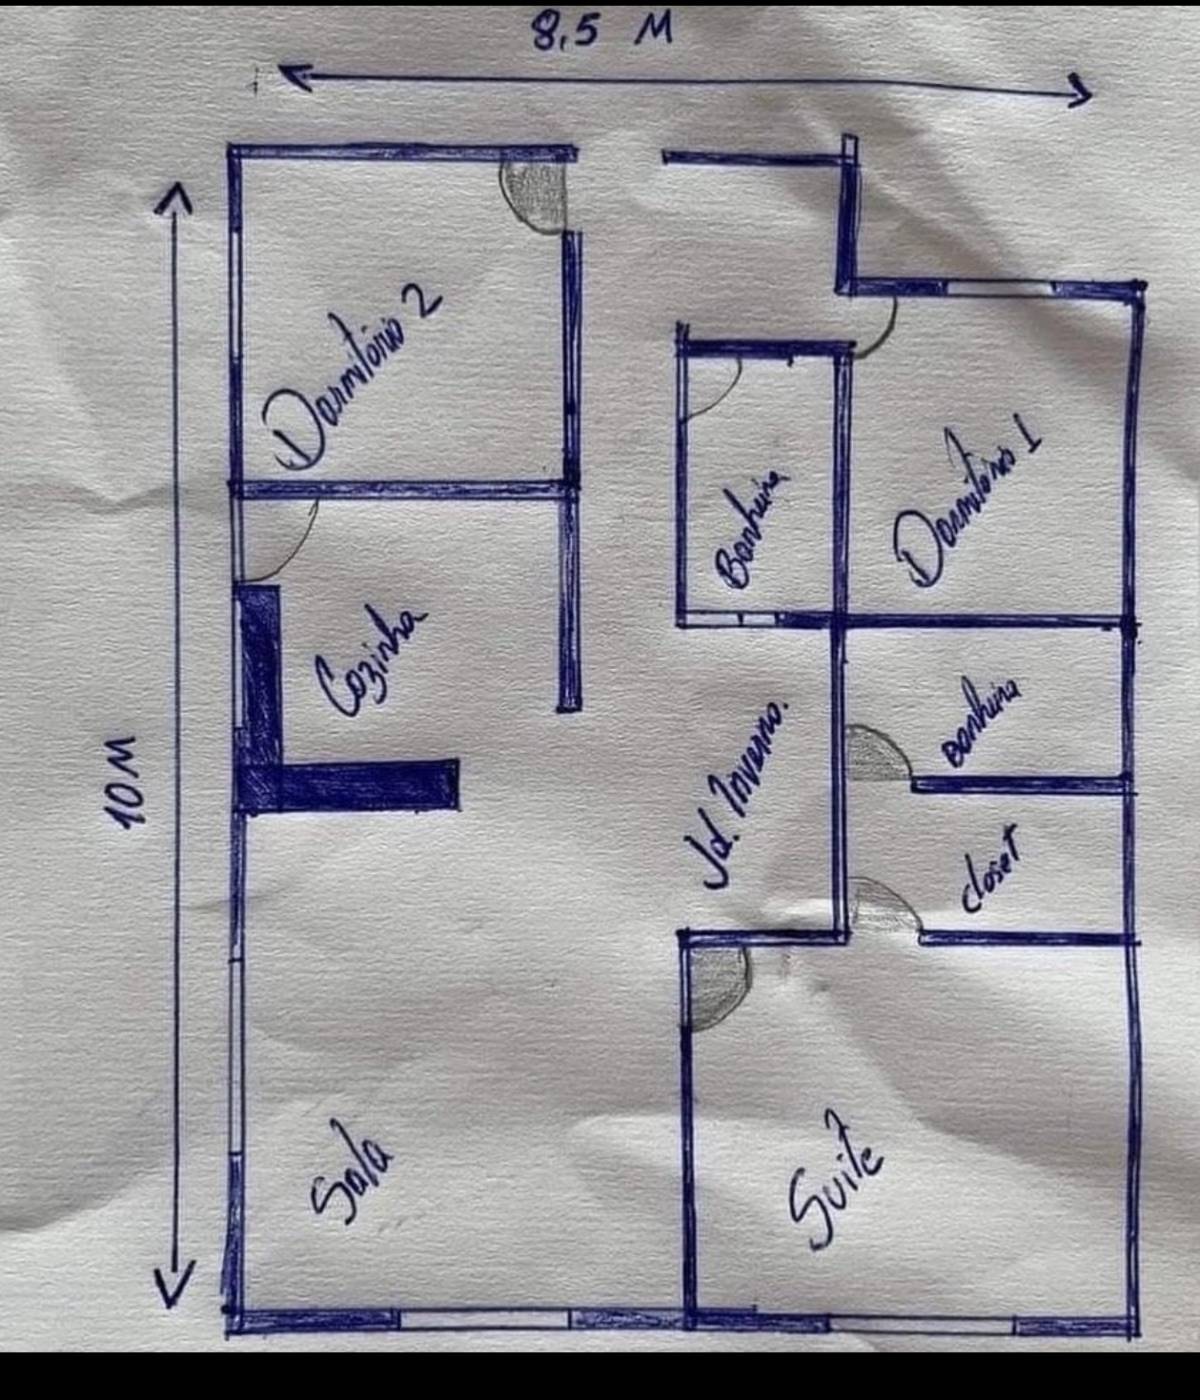 8,5 M
Dormitório 2
Dormitório 1
Banheiro
Cozinha
10M
Banheiro
Jd. Inverno.
closet
Sala
Suite